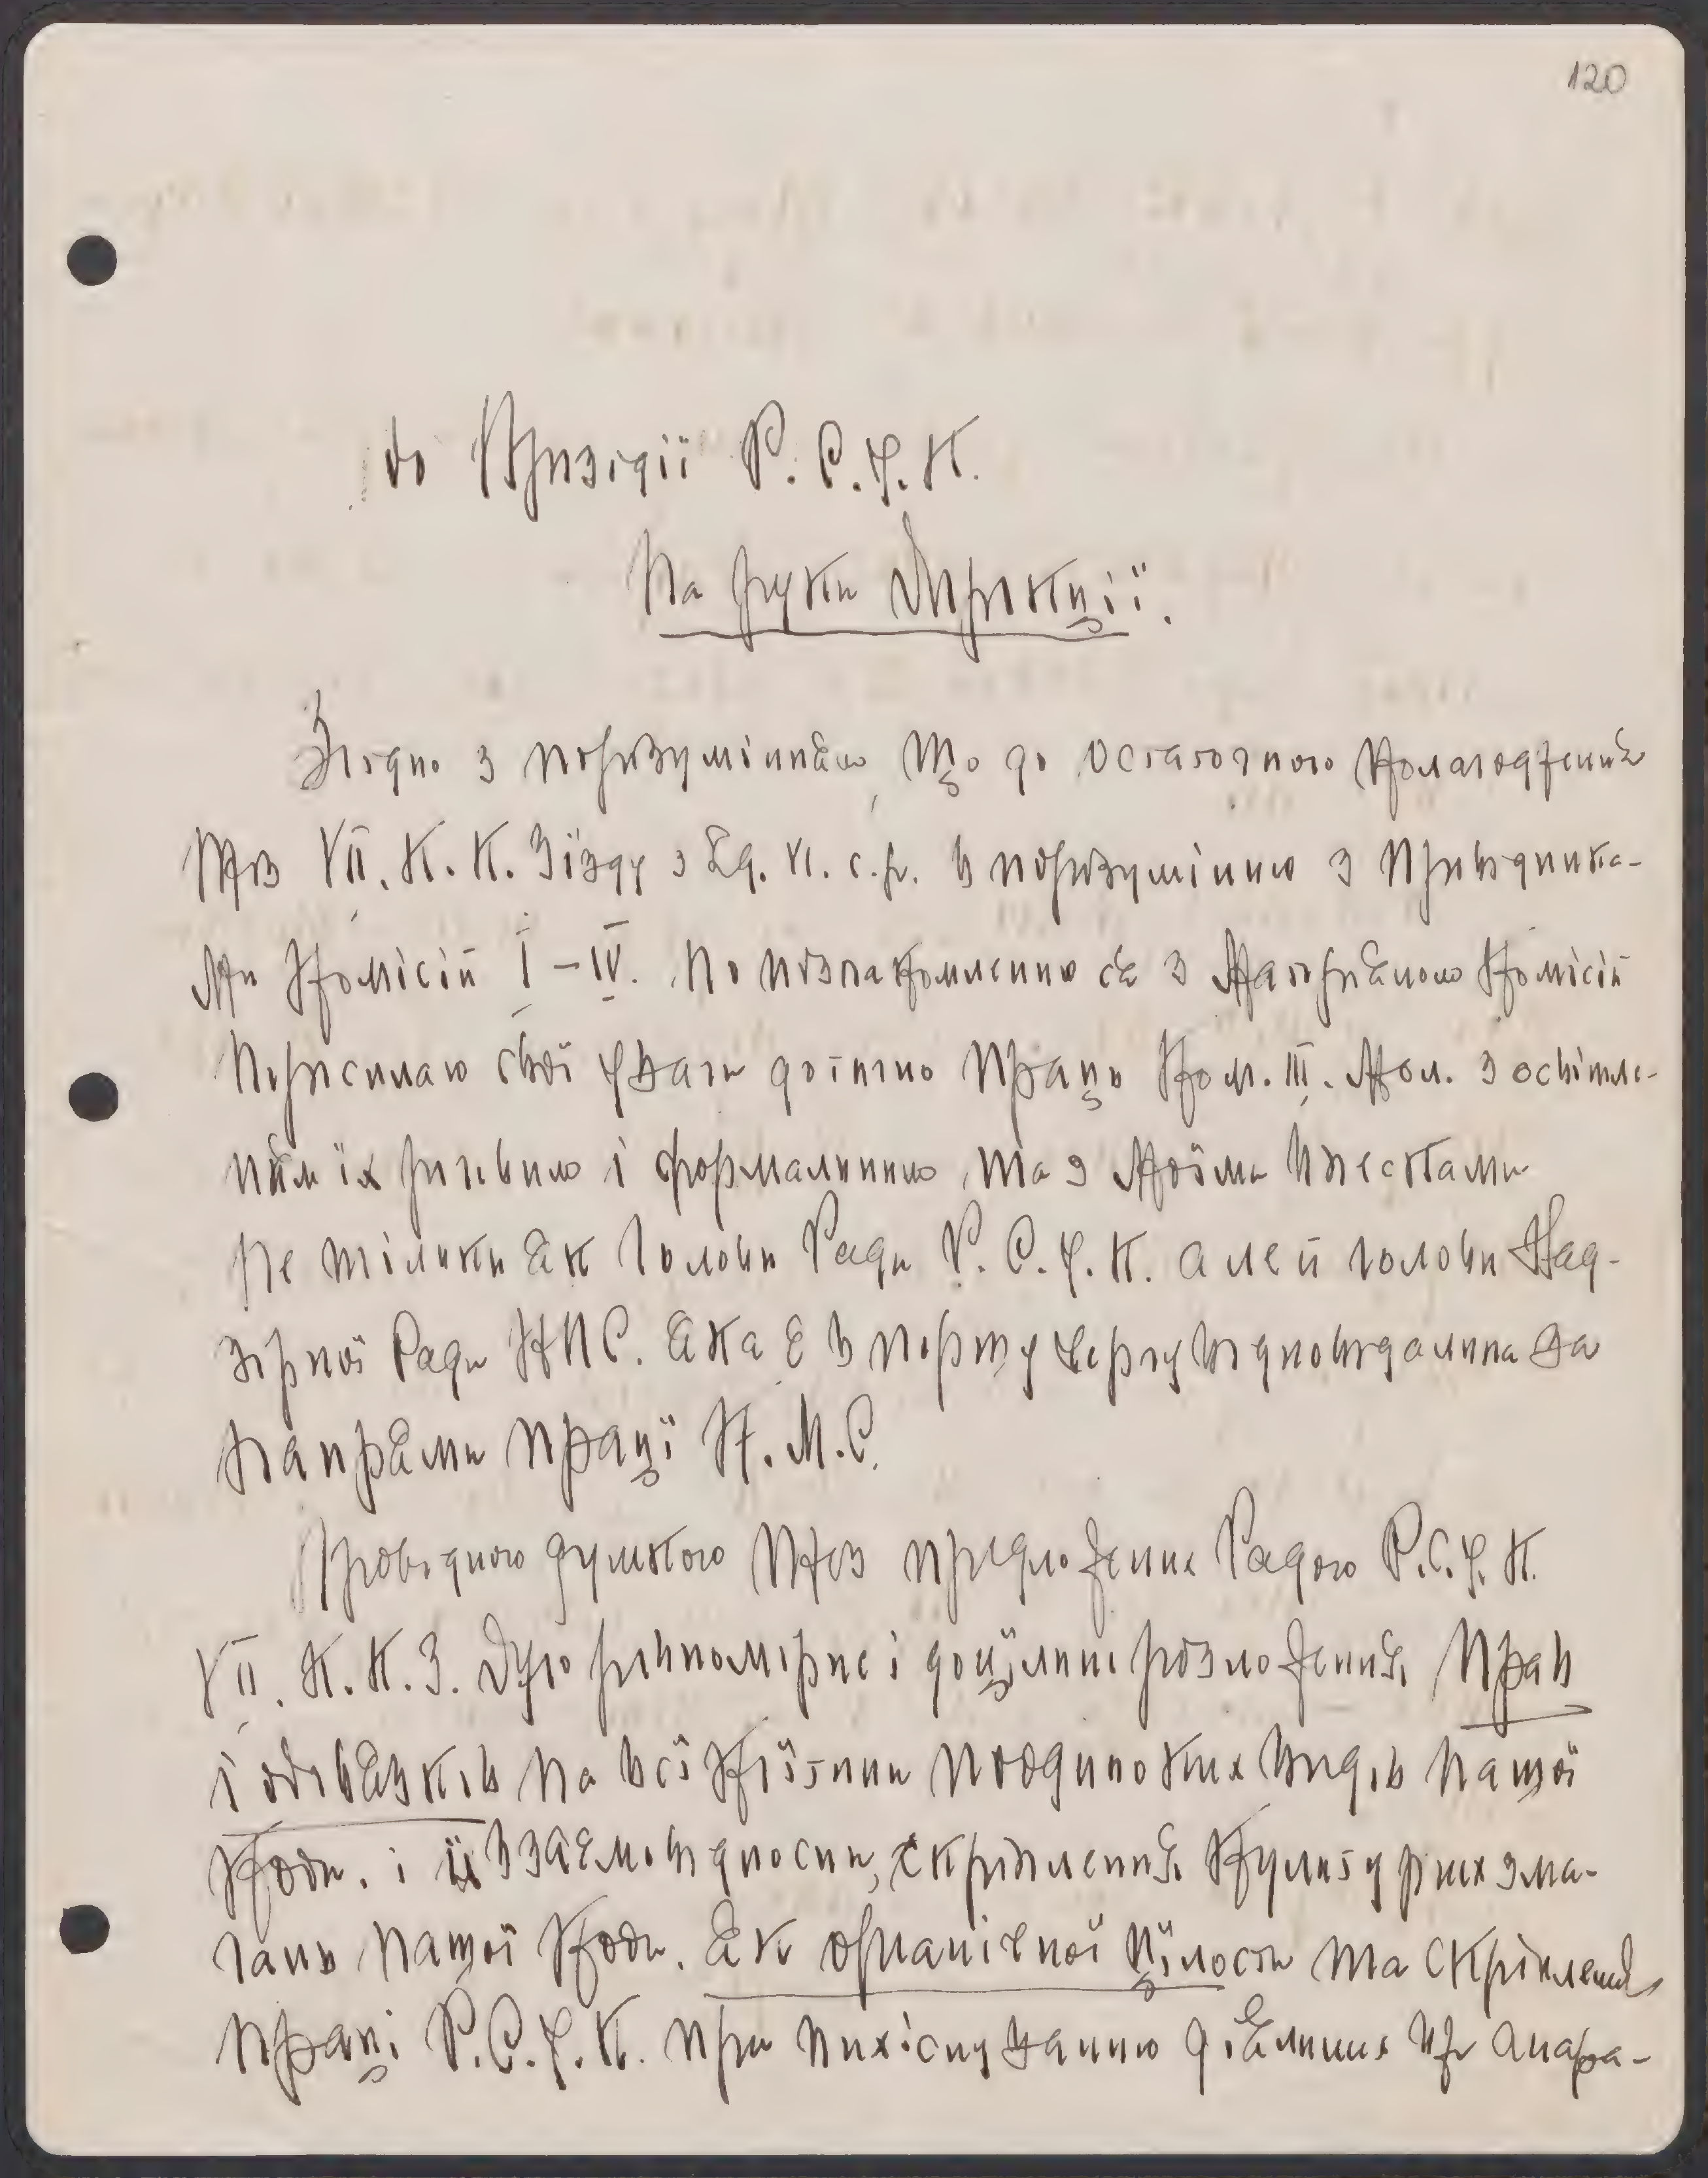 120
до Президії Р.С.У.К.
На руки Дирекції.
Згідно з порозумінням, що до остаточного полагодження
През VII. К.К. Зїзду з с.р. в порозумінню з Провідника-
ми Комісій I – IV. По познакомленню ся з Матеріялом Комісій
Пересилаю свої уваги дотично Праць Ком. III. з освітле-
ням їх річевим і формальним, та з моїми внесками
Не тільки як Голови Ради Р.С.У.К. але й голови Над-
зірної Ради К.П.С. яка є в першу чергу відповідальна за
напрями праці К.П.С.
Провідною думкою През предложення Радою Р.С.У.К.
VII. К.К.З. Було рівномірне і доцільне розложення Прав
і обовязків на всі клітини поодиноких видів нашої
Кооп. і їх взаємовідносин, скріплення культурних зма-
гань нашої Кооп. як органічної цілости та скріплення
праці Р.С.У.К. при вихіснуванню діяльних апара-